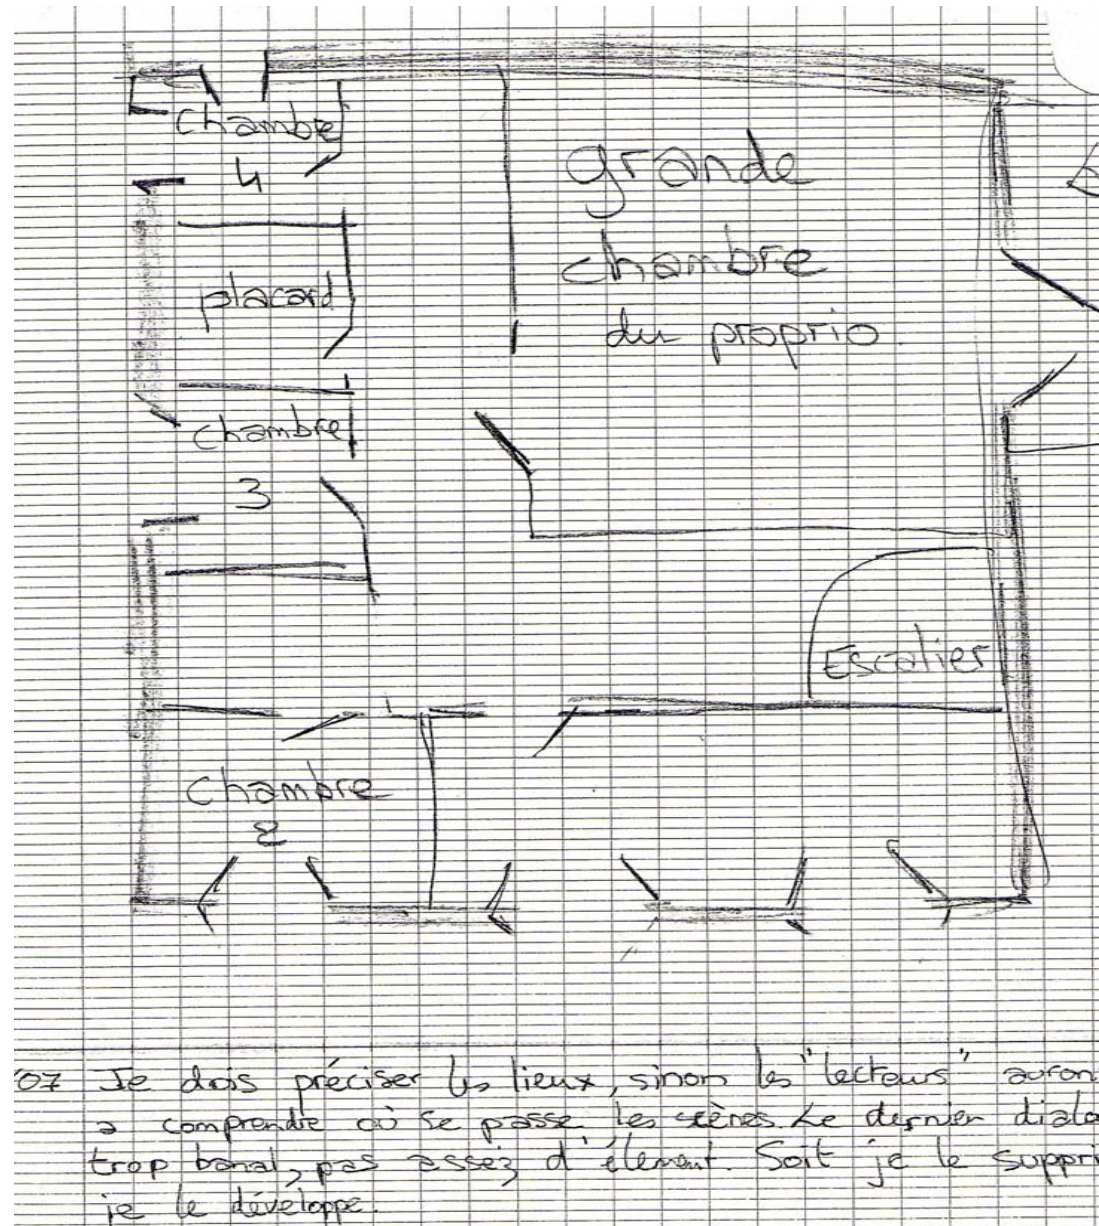 chambre
4
grande
chambre
du proprio.
placard
chambre
3
Escalier
chambre
2
'07 Je dois préciser les lieux, sinon les "lecteurs" auron
a comprendre où se passe les scènes. Le dernier dialo
trop banal, pas assez d'élément. Soit je le suppri
je le développe.